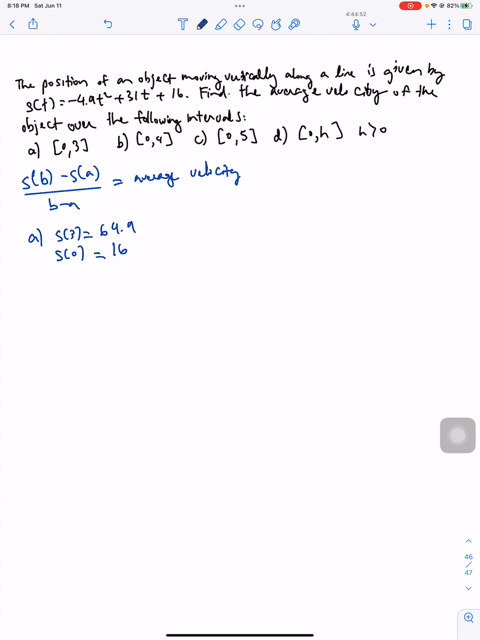 8:18 PM Sat Jun 11
4:44:52
82%
The position of an object moving vertically along a line is given by
s(t) = -4.9t² + 31t + 16. Find the average velocity of the
object over the following intervals:
a) [0,3] b) [0,4] c) [0,5] d) [0,h] h>0
s(b) - s(a) / b-a = average velocity
a) s(3) = 64.9
s(0) = 16
46
/
47